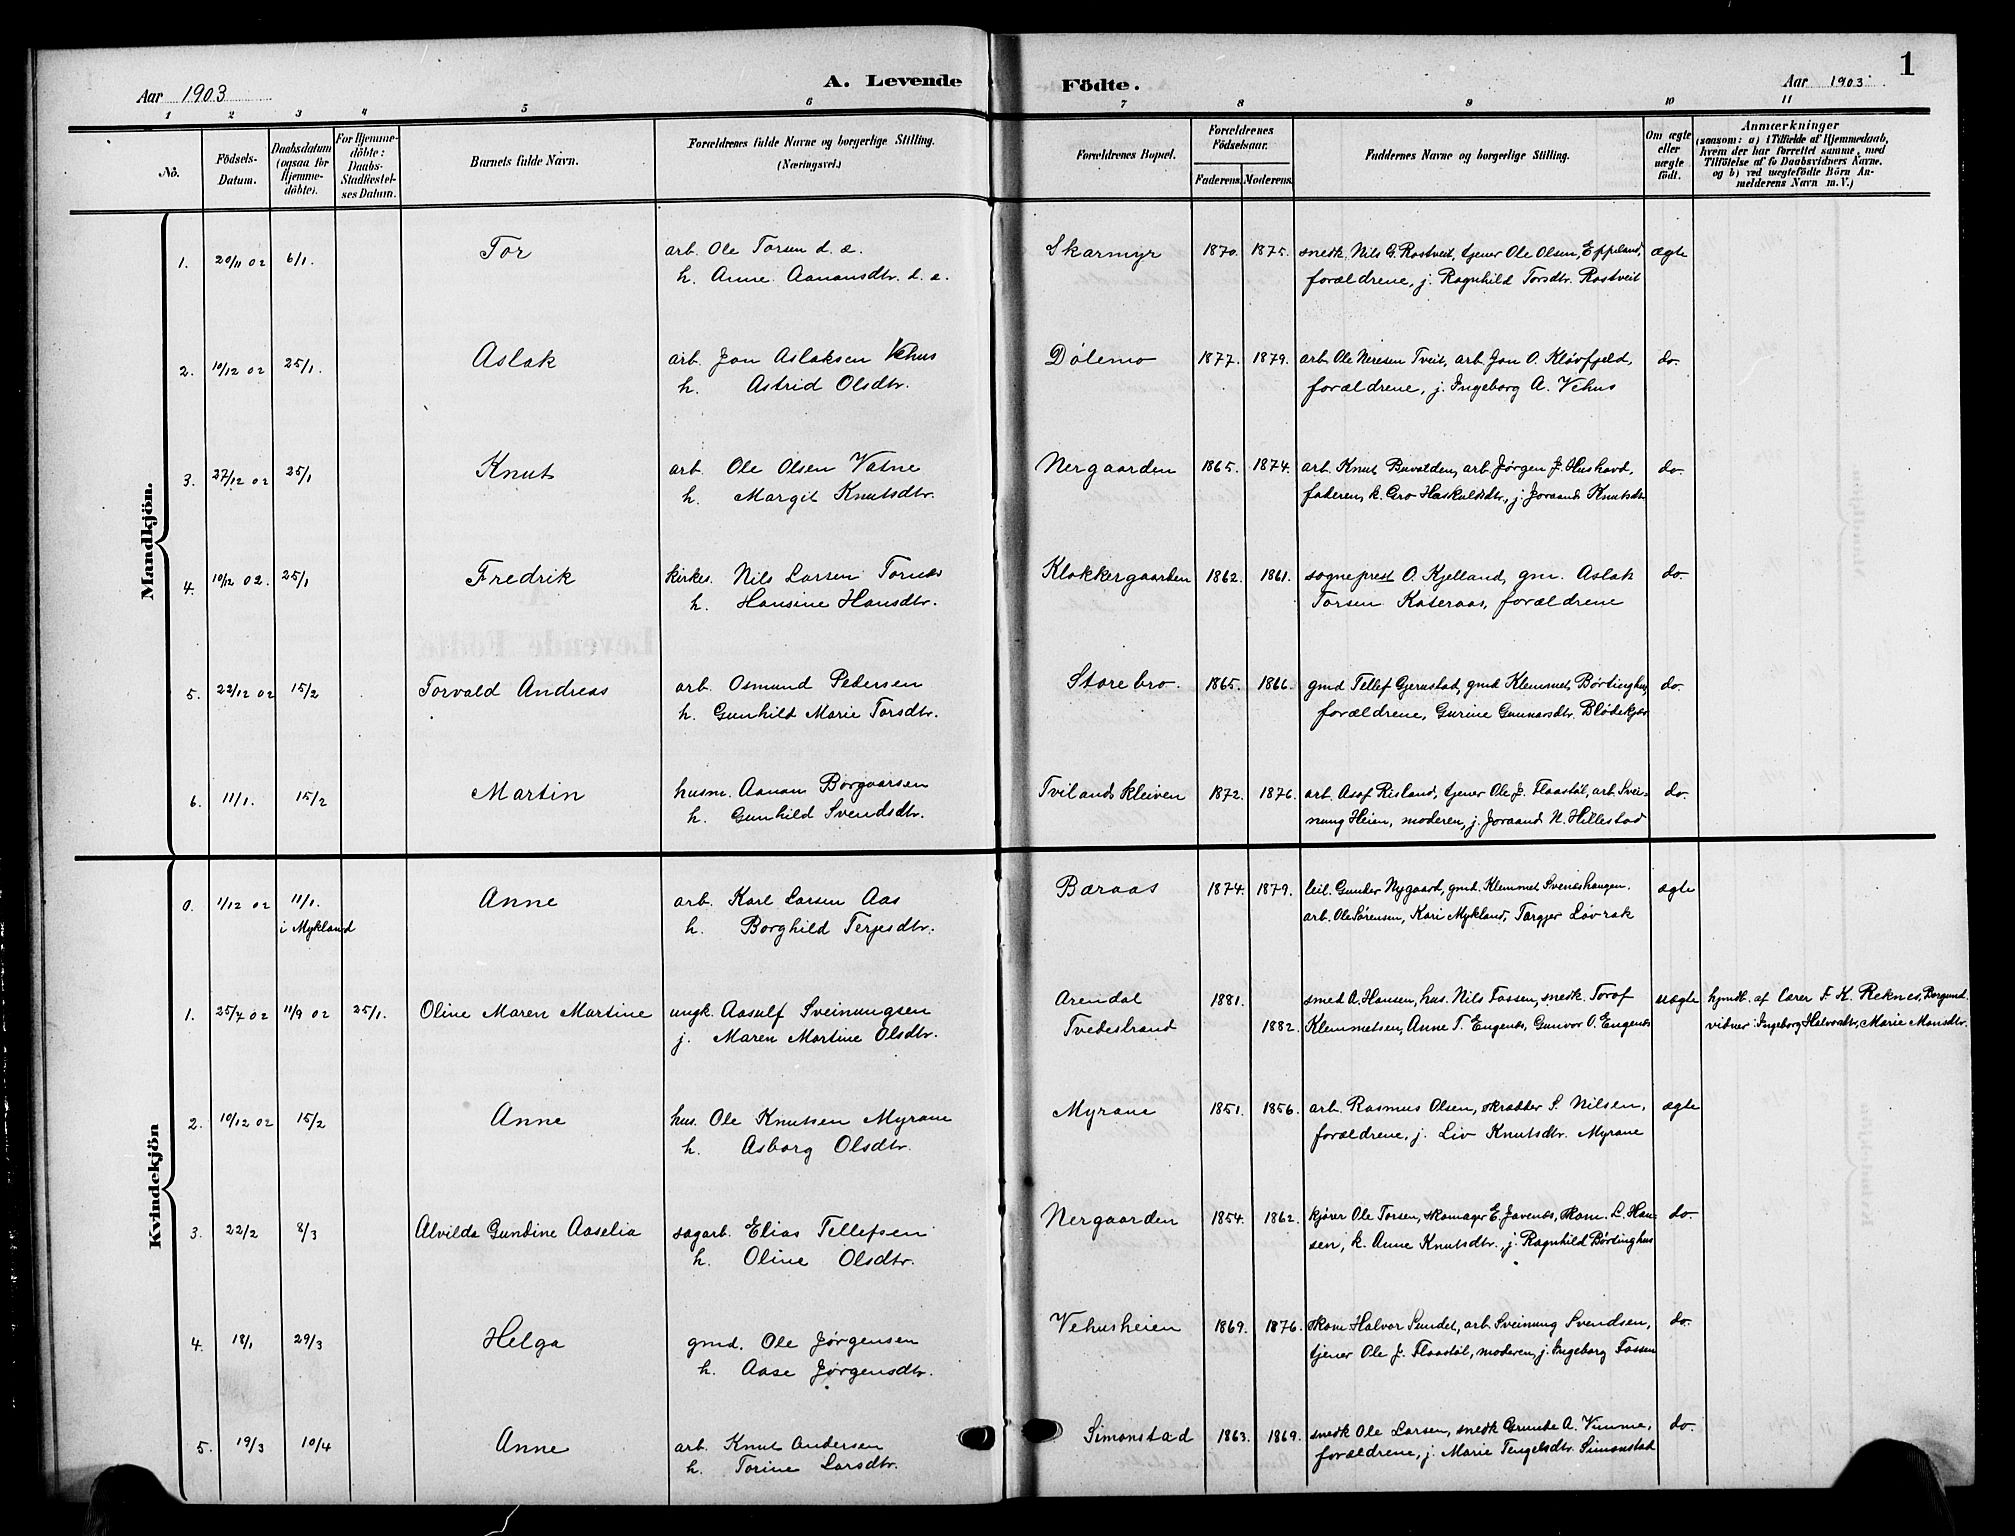 1
A. Levende Födte.
Aar 1903
Aar 1903.
1 2 3 4 5 6 7 8 9 10 11
Nö.
Födsels-Datum.
Daabsdatum (ogsaa for Hjemme-döbte).
For Hjemme-döbte: Daabs-Stadfæstel-ses Datum.
Barnets fulde Navn.
Forældrenes fulde Navne og borgerlige Stilling. (Næringsvei.)
Forældrenes Bopæl.
Forældrenes Födselsaar.
Faderens. Moderens.
Faddernes Navne og borgerlige Stilling.
Om ægte eller uægte födt.
Anmærkninger
(saasom: a) i Tilfælde af Hjemmedaab, hvem der har forrettet samme, med Tilföielse af to Daabsvidners Navne. og b) ved uægtefödte Börn An-melderens Navn m. V.)
Mandkjön.
1. 20/11 02 6/1. Tor arb. Ole Torsen d. æ. Skarmyr 1870. 1875. snedk. Nils G. Rostveit, tjener Ole Olsen, Eppeland, ægte
h. Anne Aanonsdtr. d. æ. forældrene, j. Ragnhild Torsdtr. Rostveit
2. 10/12 02 25/1. Aslak arb. Jon Aslaksen Vehus Dölemo 1877. 1879. arb. Ole Neresen Tveit, arb. Jon O. Klövfjeld, do.
h. Astrid Olsdtr. forældrene, j. Ingeborg A. Vehus
3. 27/12 02 25/1 Knut arb. Ole Olsen Vatne Nergaarden 1865. 1874. arb. Knut arb. Jörgen J. do.
h. Margit Knutsdtr. faderen, k. Gro j. Joraand Knutsdtr
4. 10/12 02. 25/1 Fredrik kirkes. Nils Larsen Tornes Klokkergaarden 1862. 1861. sogneprest O. Kjelland, gm. Aslak do.
h. Hansine Hansdtr. Torsen Kateraas, forældrene
5. 22/12 02 15/2 Torvald Andreas arb. Osmund Pedersen Storebro. 1865. 1866. gmd Tellef Gjerustad, gmd Klemmet Börtinghus, do.
h. Gunhild Marie Torsdtr. forældrene, Gurine Gunnarsdtr. Blödekjær
6. 11/1. 15/2 Martin husm. Aanon Borgvarsen Tvilandskleiven 1872. 1876. arb. Asof Risland, tjener Ole J. Flaastöl, arb. Svei- do.
h. Gunhild Svendsdtr. nung Heien, moderen, j. Joraand N. Hillestad
Kvindekjön
0. 1/12 02 11/1. Anne arb. Karl Larsen Aas Bæraas 1874. 1879. leil. Gunder Nygaard, gmd. Klemmet Svenshaugen. ægte
i Mykland h. Borghild Terjesdtr. arb. Ole Sörensen, Kari Mykland, Targjer Lövrak
1. 25/4 02 11/9 02 25/1. Oline Maren Martine ungk. Aasulf Sveinungsen Arendal 1881. smed A. Hansen, hus. Nils Fossen, snedk. Torof uægte hjmdb. af Lærer F. K. Reknes, Borgund.
j. Maren Martine Olsdtr. Tvedestrand 1882. Klemmetsen, Anne T. Engenes, Gunvor O. Engenes vidner: Ingeborg Halvorsdtr, Marie Monsdtr.
2. 10/12 02 15/2 Anne hus. Ole Knutsen Myrane Myrane 1851. 1856. arb. Rasmus Olsen, skrædder S. Nilsen, ægte
h. Asborg Olsdtr. forældrene, j. Liv Knutsdtr. Myrane
3. 22/2 8/3 Alvilda Gundine Aaselia sagarb. Elias Tellefsen Nergaarden 1854. 1862. kjörer Ole Torsen, skomager E. Javenes, skom. L. Han- do.
h. Oline Olsdtr. sen, k. Anne Knutsdtr., j. Ragnhild Börtinghus
4. 18/1 29/3 Helga gmd. Ole Jörgensen Vehusheien 1869. 1876. skom Halvor Sundet, arb. Sveinung Svendsen, do.
h. Aase Jörgensdtr. tjener Ole J. Flaastöl, moderen, j. Ingeborg Fossen
5. 19/3 10/4 Anne arb. Knut Andersen Simonstad 1863. 1869. snedk Ole Larsen, snedk Grunde A. Vimme, do.
h. Torine Larsdtr. forældrene, j. Marie Tengelsdtr. Simonstad